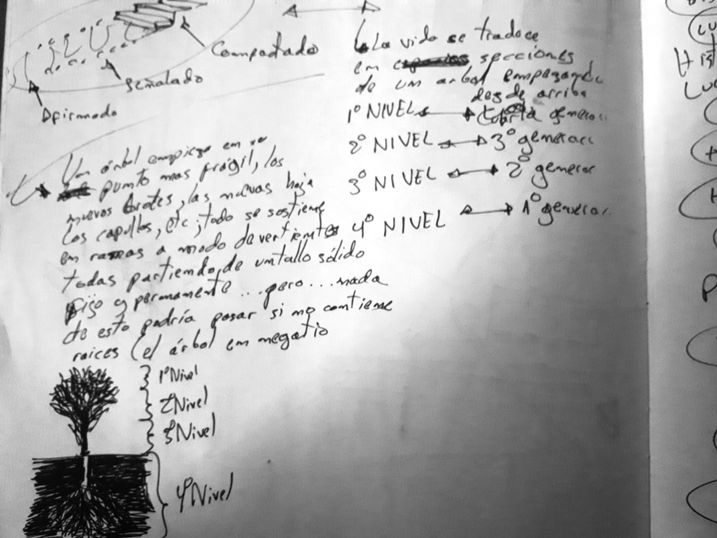 Compactado
Señalado
Afirmado
La vida se traduce
en secciones
de un arbol empezando
desde arriba
1º NIVEL cuarta generac
2º NIVEL 3º generaci
3º NIVEL 2º generac
4º NIVEL 1º generac.
Un árbol empieza en su
punto mas frágil, los
nuevos brotes, las nuevas hoja
los capullos, etc, todo se sostiene
en ramas a modo de vertientes
todas partiendo de un tallo sólido
fijo y permanente ... pero ... nada
de esto podría pasar si no contiene
raices (el árbol en negatio
1º Nivel
2 Nivel
3º Nivel
4º Nivel